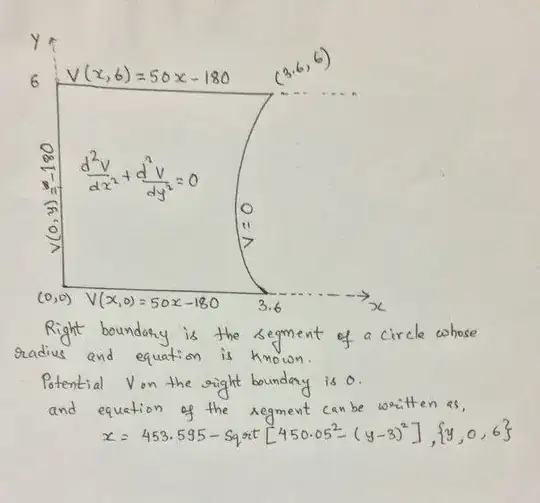 Y
6 V(x,6) = 50x - 180 (3.6, 6)
V(0,y) = -180
d²V/dx² + d²V/dy² = 0
V = 0
(0,0) V(x,0) = 50x - 180 3.6 x
Right boundary is the segment of a circle whose
radius and equation is known.
Potential V on the right boundary is 0.
and equation of the segment can be written as,
x = 453.595 - Sqrt [450.05² - (y-3)²], {y, 0, 6}